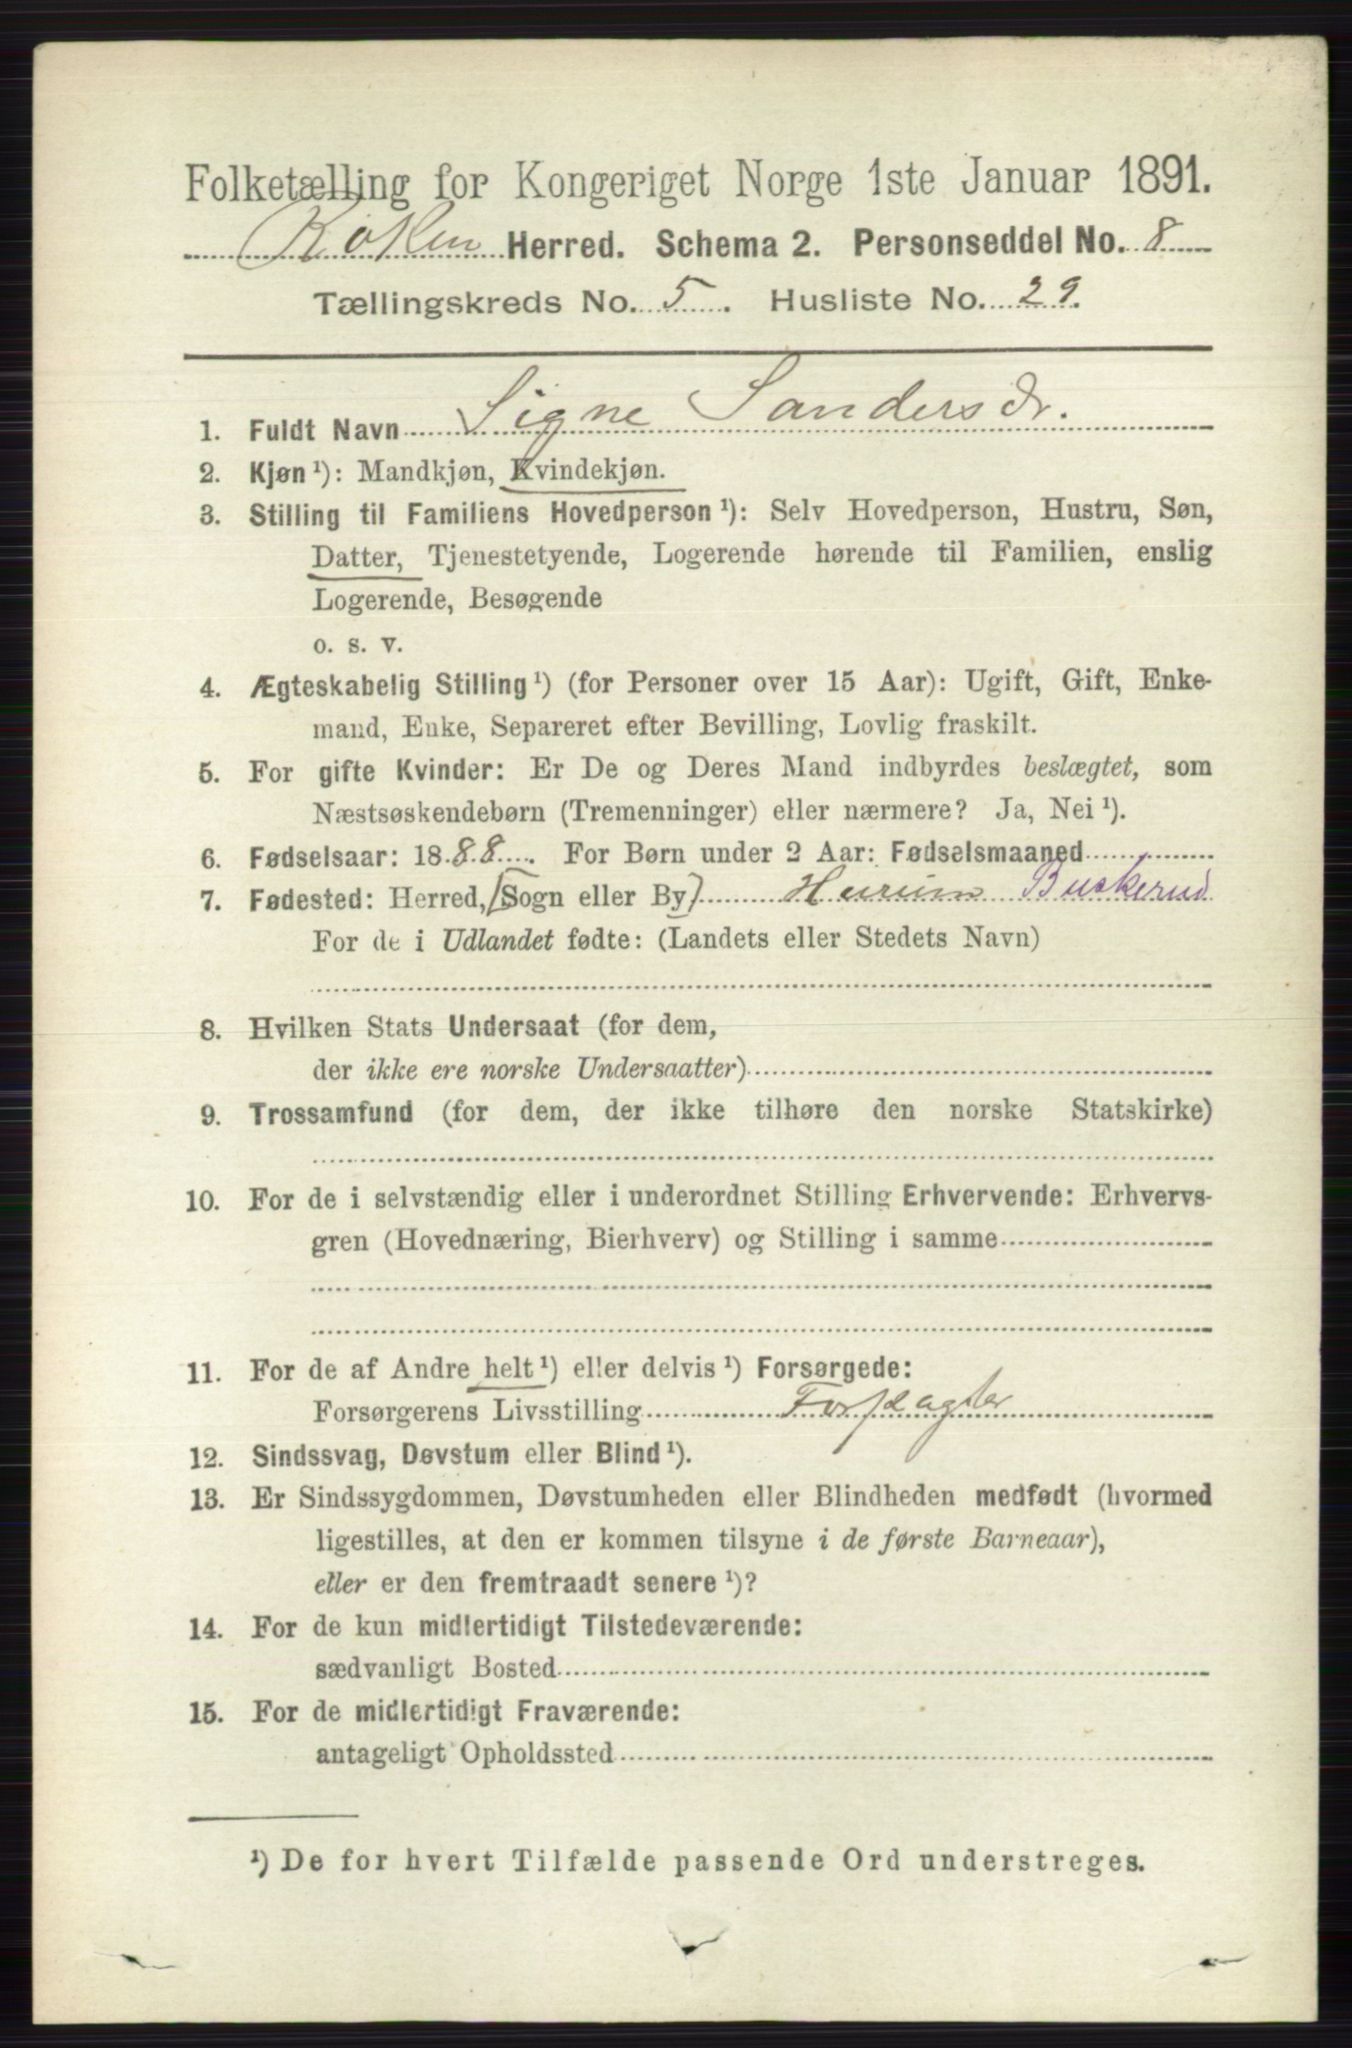 Folketælling for Kongeriget Norge 1ste Januar 1891.
Røken Herred. Schema 2. Personseddel No. 8
Tællingskreds No. 5. Husliste No. 29.
1. Fuldt Navn Signe Sandersdr.
2. Kjøn ¹): Mandkjøn, Kvindekjøn.
3. Stilling til Familiens Hovedperson ¹): Selv Hovedperson, Hustru, Søn,
Datter, Tjenestetyende, Logerende hørende til Familien, enslig
Logerende, Besøgende
o. s. v.
4. Ægteskabelig Stilling ¹) (for Personer over 15 Aar): Ugift, Gift, Enke-
mand, Enke, Separeret efter Bevilling, Lovlig fraskilt.
5. For gifte Kvinder: Er De og Deres Mand indbyrdes beslægtet, som
Næstsøskendebørn (Tremenninger) eller nærmere? Ja, Nei ¹).
6. Fødselsaar: 1888. For Børn under 2 Aar: Fødselsmaaned
7. Fødested: Herred, [Sogn eller By] Hurum Buskerud
For de i Udlandet fødte: (Landets eller Stedets Navn)
8. Hvilken Stats Undersaat (for dem,
der ikke ere norske Undersaatter)
9. Trossamfund (for dem, der ikke tilhøre den norske Statskirke)
10. For de i selvstændig eller i underordnet Stilling Erhvervende: Erhvervs-
gren (Hovednæring, Bierhverv) og Stilling i samme
11. For de af Andre helt ¹) eller delvis ¹) Forsørgede:
Forsørgerens Livsstilling Forpagter
12. Sindssvag, Døvstum eller Blind ¹).
13. Er Sindssygdommen, Døvstumheden eller Blindheden medfødt (hvormed
ligestilles, at den er kommen tilsyne i de første Barneaar),
eller er den fremtraadt senere ¹)?
14. For de kun midlertidigt Tilstedeværende:
sædvanligt Bosted
15. For de midlertidigt Fraværende:
antageligt Opholdssted
¹) De for hvert Tilfælde passende Ord understreges.